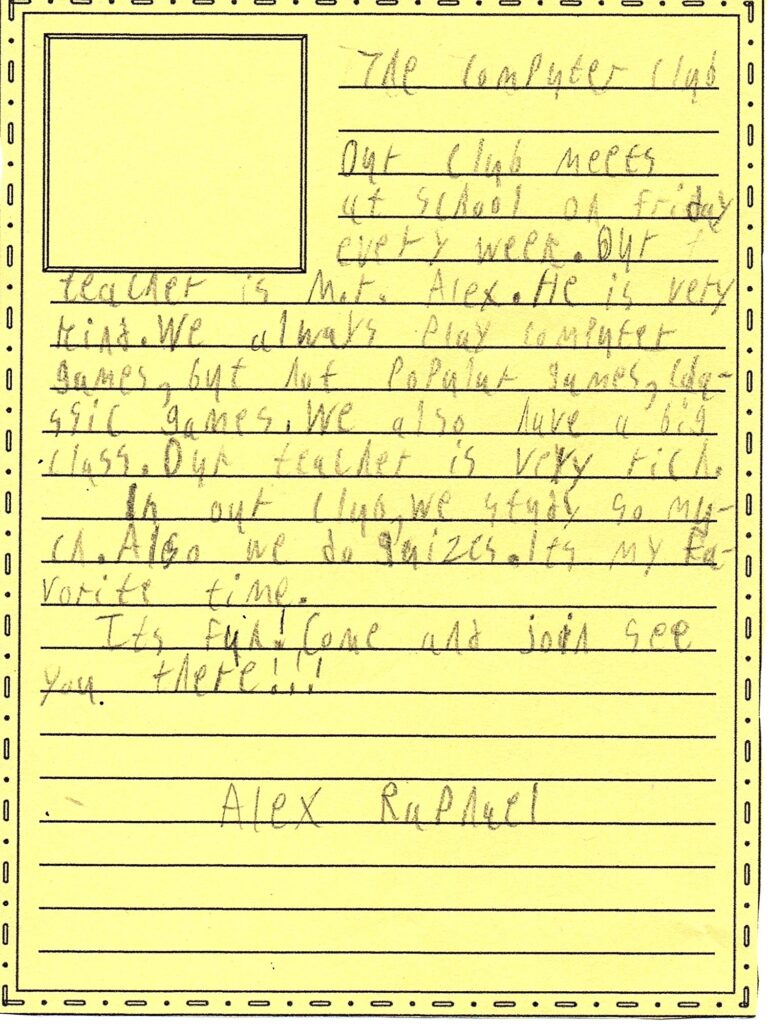 The Computer Club
Our club meets
at school on Friday
every week. Our
teacher is M.r. Alex. He is very
kind. We always play computer
games, but not popular games, cla-
ssic games. We also have a big
class. Our teacher is very rich.
In our club, we study so mu-
ch. Also we do quizes. Its my fa-
vorite time.
Its fun! Come and join see
you there!!!
Alex Raphael